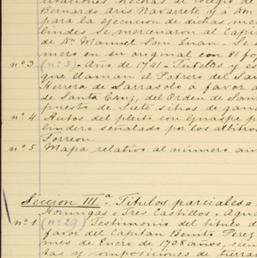 Bernardo Aris Navarrete y a
para la ejecucion de dichas me
lindes se mercenaron al Capi
de Dn. Manuel
en su original con 81 fo
nº 3 (nº 3.) Año de 1741 - Titulos y es
que llaman el Potrero del Sau
Herrera de Sarrasolo á favor
se Santa Cruz, del Orden de San
puesto de siete sitios de gana
nº 4. Autos del pleito con
lindero señalado por los
Torreon
nº 5 Mapa relativo al número an
Seccion IIIª - Titulos parciales
Hormigas - Tres Castillos - Agu
nº 1 (nº 29) Testimonio del titulo d
favor del Capitan Benito Pere
mes de Enero de 1708 años, sien
tas y composiciones de tierra